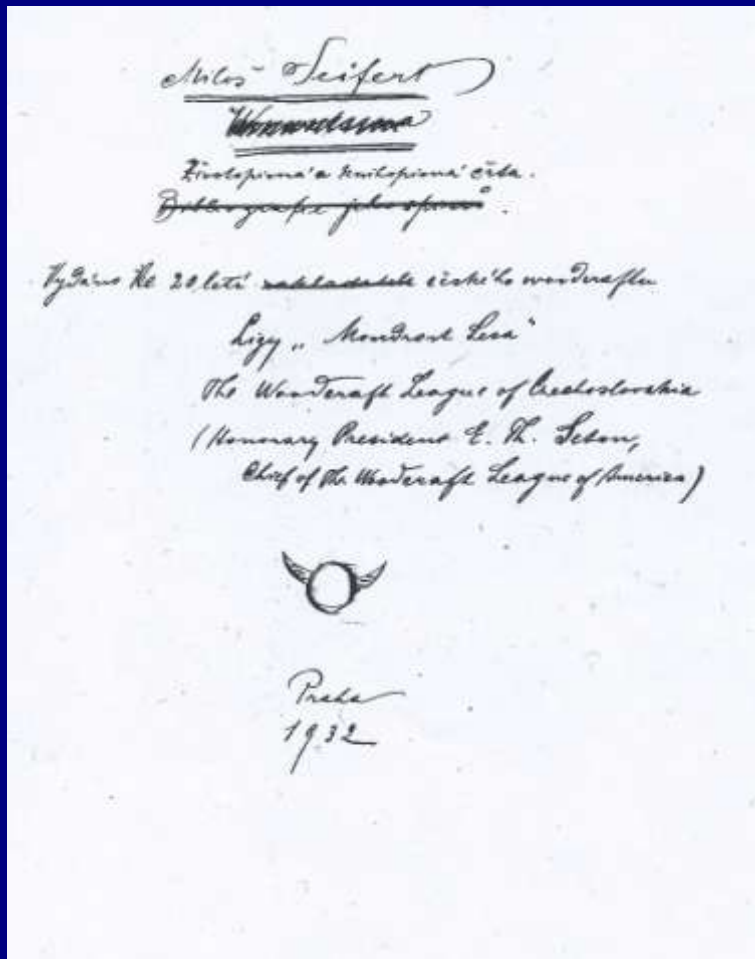 Miloš Seifert
Životopisná a knihopisná črta.
Bibliografie jeho spisů.
Vydáno ke 20letí zakladatele českého woodcraftu
Ligy „Moudrost Lesa“
The Woodcraft League of Czechoslovakia
(Honorary President E. Th. Seton,
Chief of The Woodcraft League of America)
Praha
1932